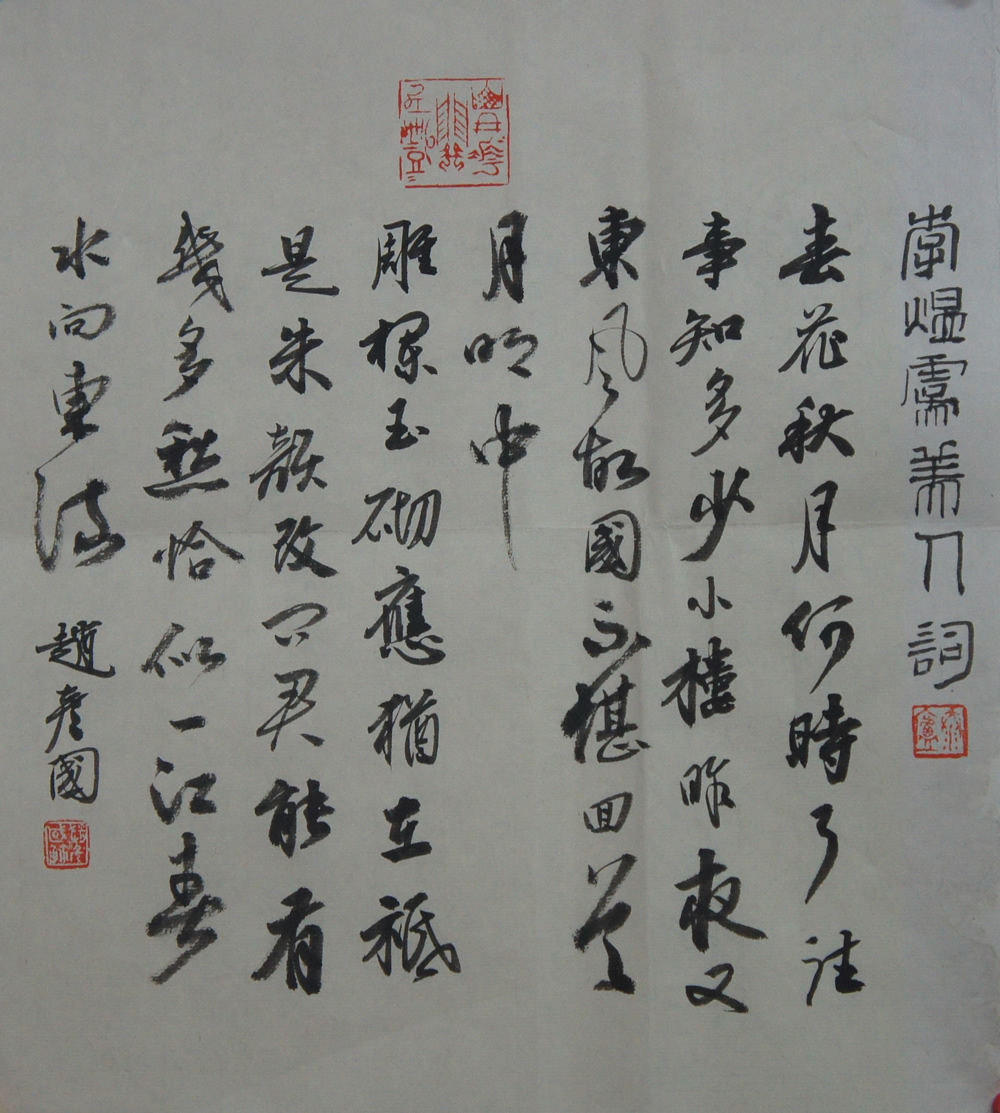 李煜虞美人詞
春花秋月何時了往
事知多少小樓昨夜又
東風故國不堪回首
月明中
雕欄玉砌應猶在祗
是朱顏改問君能有
幾多愁恰似一江春
水向東流
趙彥國